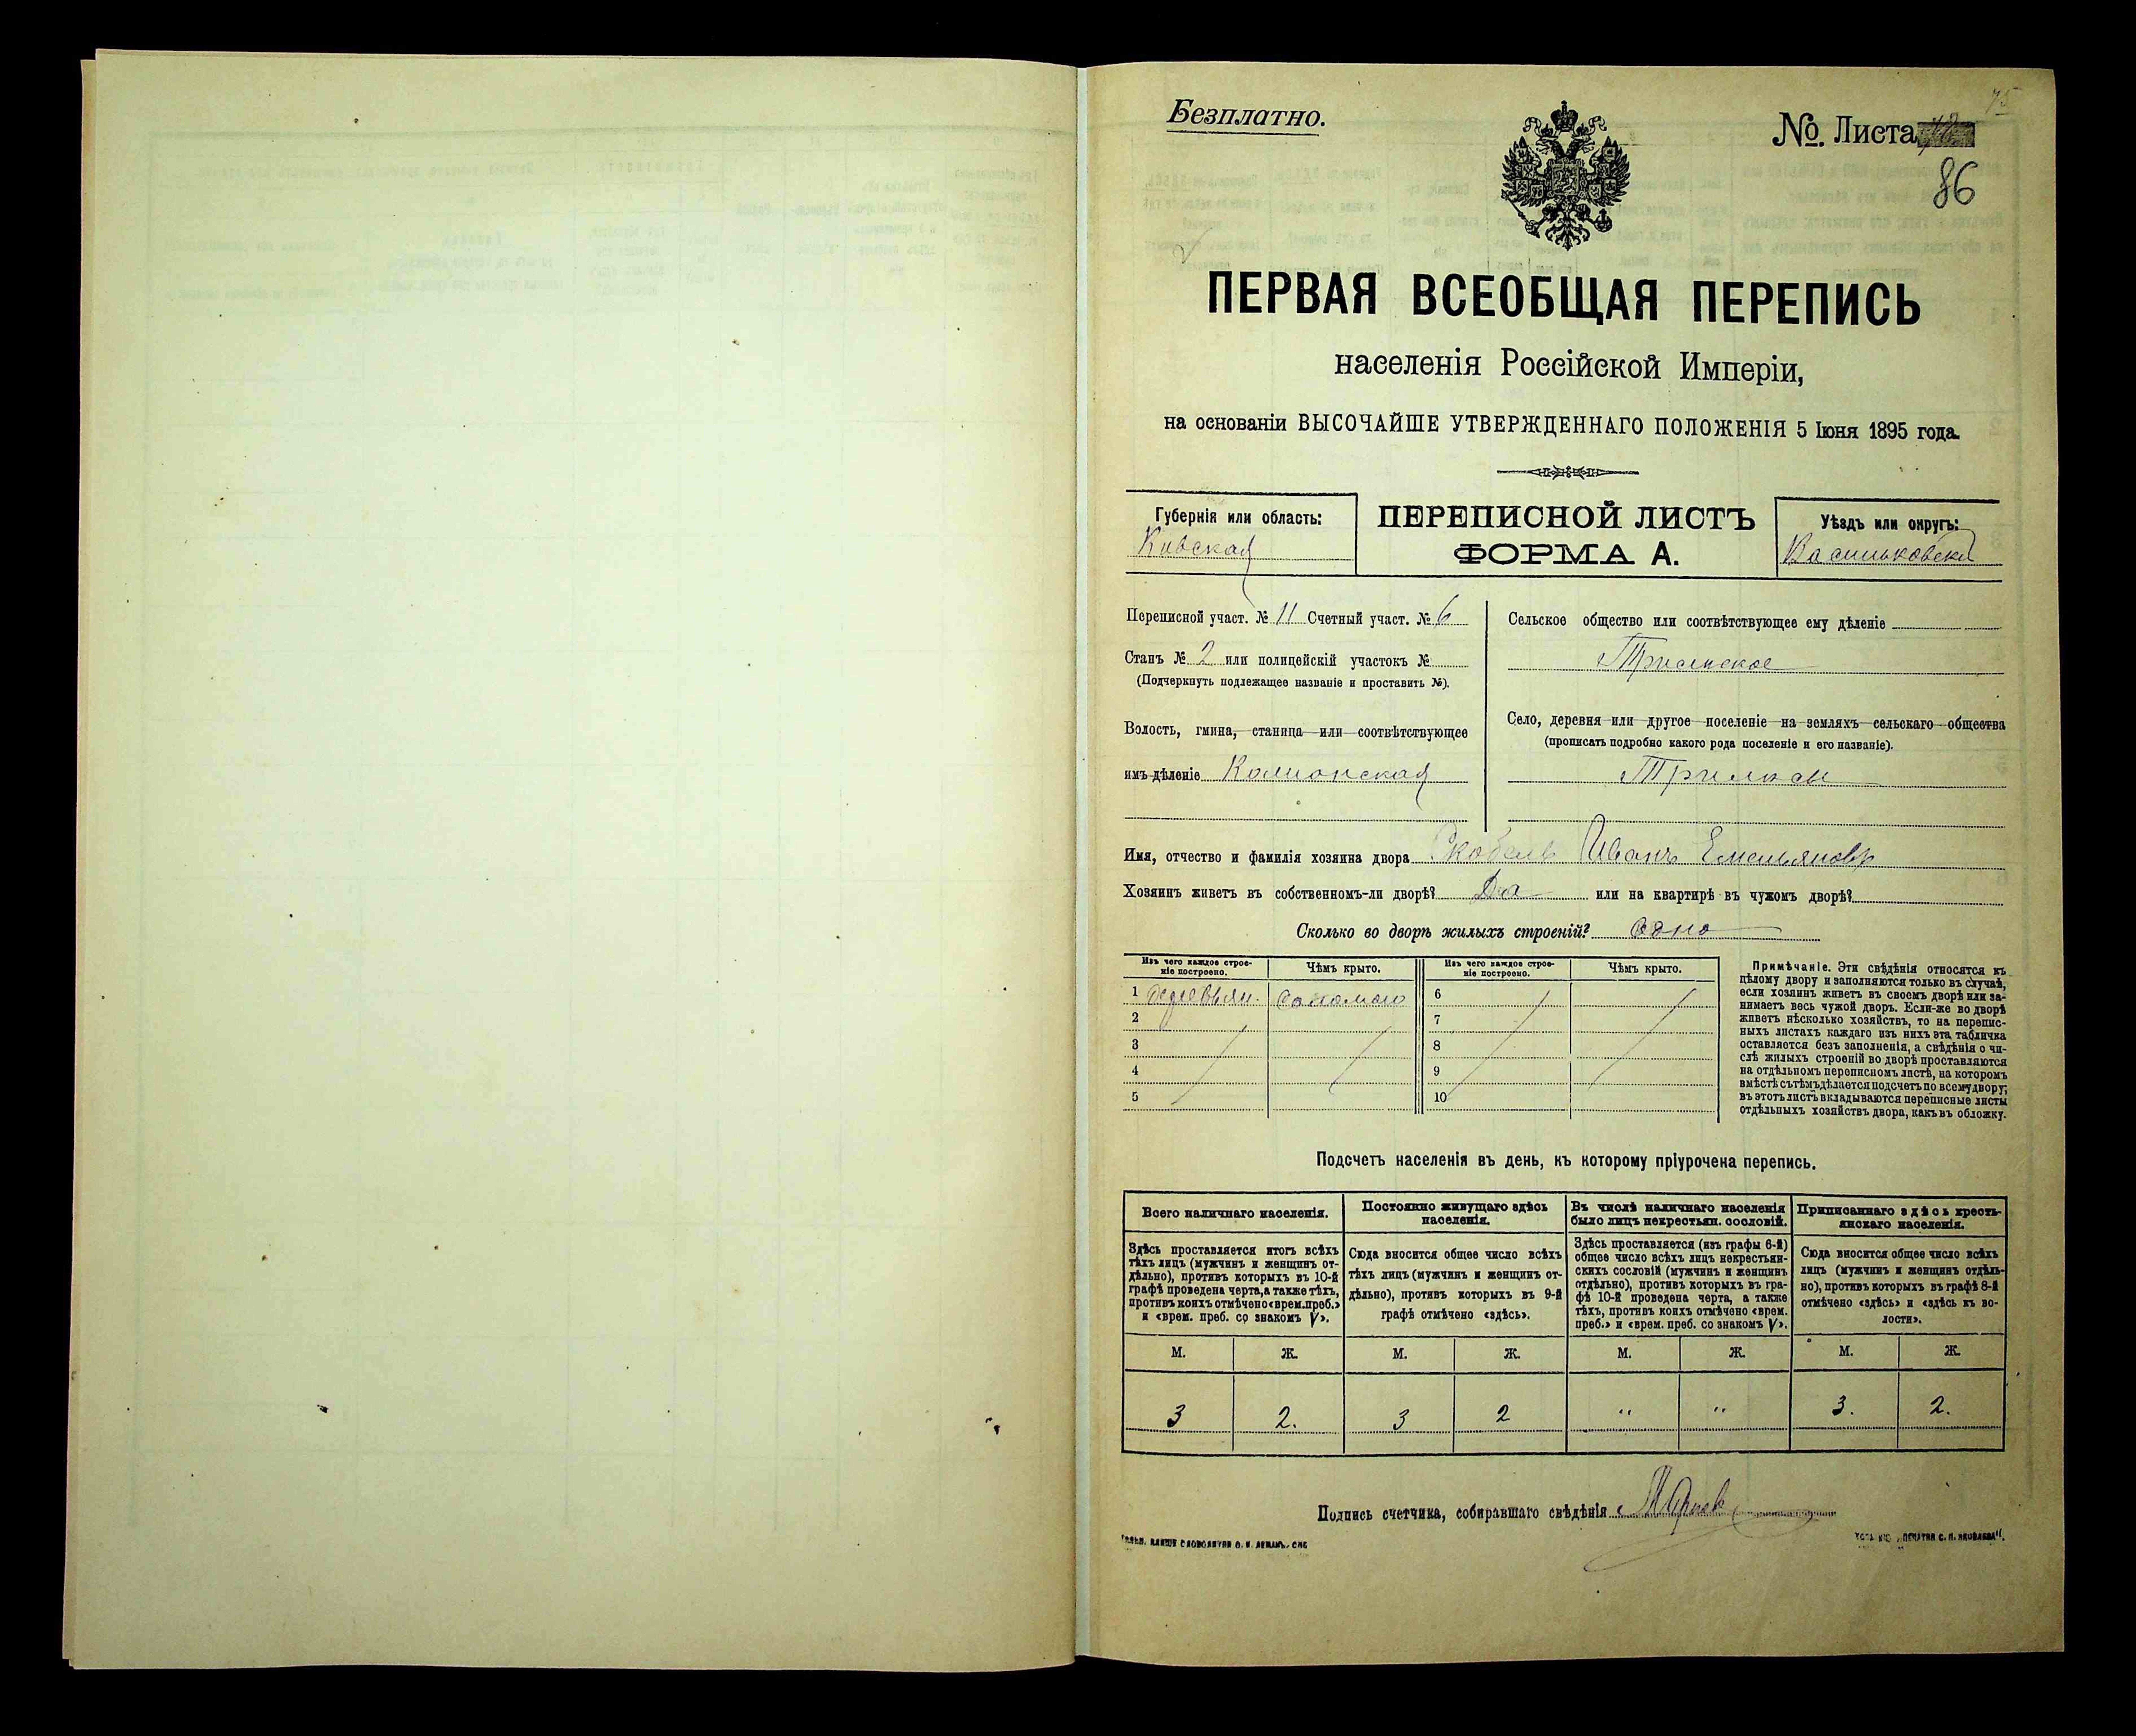 75
Безплатно.
№. Листа
86
ПЕРВАЯ ВСЕОБЩАЯ ПЕРЕПИСЬ
населенія Россійской Имперіи,
на основаніи ВЫСОЧАЙШЕ УТВЕРЖДЕННАГО ПОЛОЖЕНІЯ 5 Іюня 1895 года.
Губернія или область:
Кивская
ПЕРЕПИСНОЙ ЛИСТЪ
ФОРМА А.
Уѣздъ или округъ:
Васильковскій
Переписной участ. № 11 Счетный участ. № 6
Станъ № 2 или полицейскій участокъ №
(Подчеркнуть подлежащее названіе и проставить №).
Волость, гмина, станица или соотвѣтствующее
имъ дѣленіе
Сельское общество или соотвѣтствующее ему дѣленіе
Село, деревня или другое поселеніе на земляхъ сельскаго общества
(прописать подробно какого рода поселеніе и его названіе).
Имя, отчество и фамилія хозяина двора Иванъ Емельяновъ
Хозяинъ живетъ въ собственномъ-ли дворѣ? Да или на квартирѣ въ чужомъ дворѣ?
Сколько во дворѣ жилыхъ строеній? одно
Изъ чего каждое строе-
ніе построено.
Чѣмъ крыто.
Изъ чего каждое строе-
ніе построено.
Чѣмъ крыто.
1 деревян. соломою 6
2 7
3 8
4 9
5 10
Примѣчаніе. Эти свѣдѣнія относятся къ
цѣлому двору и заполняются только въ случаѣ,
если хозяинъ живетъ въ своемъ дворѣ или за-
нимаетъ весь чужой дворъ. Если-же во дворѣ
живетъ нѣсколько хозяйствъ, то на перепис-
ныхъ листахъ каждаго изъ нихъ эта табличка
оставляется безъ заполненія, а свѣдѣнія о чи-
слѣ жилыхъ строеній во дворѣ проставляются
на отдѣльномъ переписномъ листѣ, на которомъ
вмѣстѣ съ тѣмъ дѣлается подсчетъ по всему двору;
въ этотъ листъ вкладываются переписные листы
отдѣльныхъ хозяйствъ двора, какъ въ обложку.
Подсчетъ населенія въ день, къ которому пріурочена перепись.
Всего наличнаго населенія.
Постоянно живущаго здѣсь
населенія.
Въ числѣ наличнаго населенія
было лицъ некрестьян. сословій.
Приписаннаго здѣсь кресть-
янскаго населенія.
Здѣсь проставляется итогъ всѣхъ
тѣхъ лицъ (мужчинъ и женщинъ от-
дѣльно), противъ которыхъ въ 10-й
графѣ проведена черта, а также тѣхъ,
противъ коихъ отмѣчено «врем. преб.»
и «врем. преб. со знакомъ V».
Сюда вносится общее число всѣхъ
тѣхъ лицъ (мужчинъ и женщинъ от-
дѣльно), противъ которыхъ въ 9-й
графѣ отмѣчено «здѣсь».
Здѣсь проставляется (изъ графы 6-й)
общее число всѣхъ лицъ некрестьян-
скихъ сословій (мужчинъ и женщинъ
отдѣльно), противъ которыхъ въ гра-
фѣ 10-й проведена черта, а также
тѣхъ, противъ коихъ отмѣчено «врем.
преб.» и «врем. преб. со знакомъ V».
Сюда вносится общее число всѣхъ
лицъ (мужчинъ и женщинъ отдѣль-
но), противъ которыхъ въ графѣ 8-й
отмѣчено «здѣсь» и «здѣсь къ во-
лости».
М. Ж. М. Ж. М. Ж. М. Ж.
3 2. 3 2 " " 3. 2.
Подпись счетчика, собиравшаго свѣдѣнія